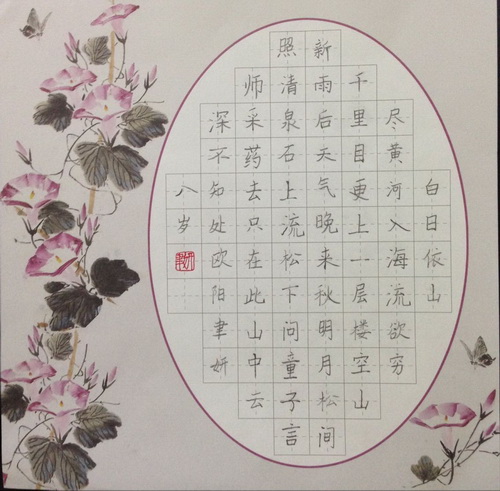 白日依山
尽黄河入海流欲穷
千里目更上一层楼空山
新雨后天气晚来秋明月松间
照清泉石上流松下问童子言
师采药去只在此山中云
深不知处欧阳聿妍
八岁